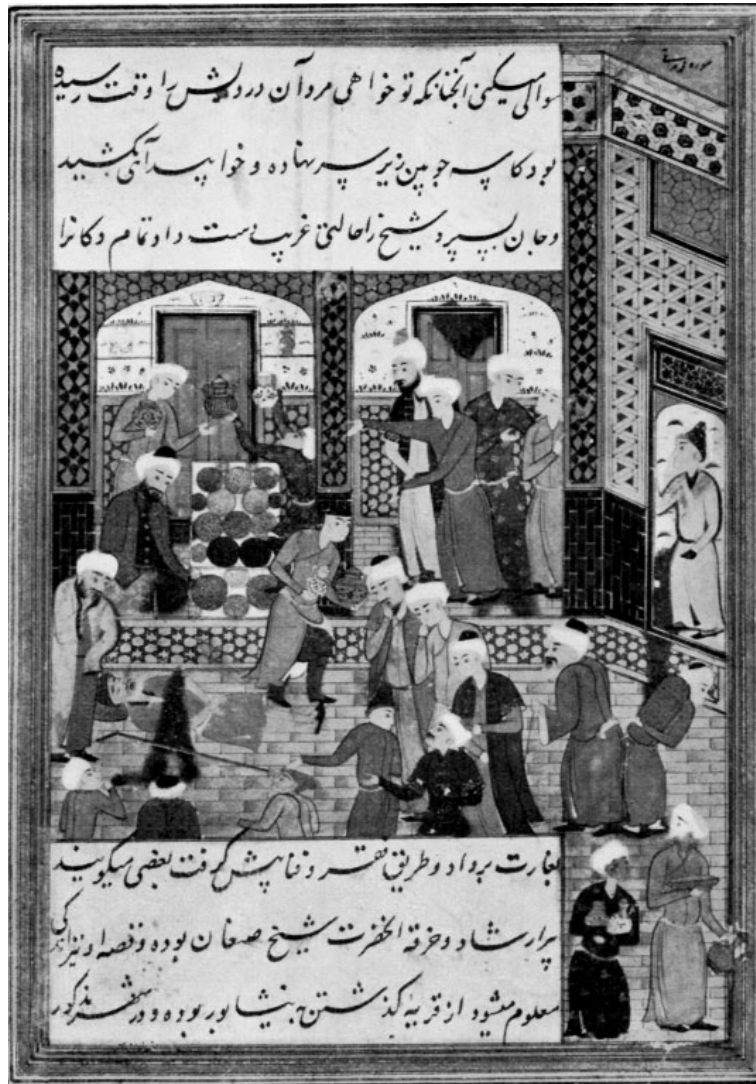 سوالی میکنی آنچنانکه تو خواهی مرد آن درویش را وقت رسیده
بود کاسه چوبین زیر سر نهاده و خوابید آهی بکشید
و جان بسپرد شیخ را حالتی غریب دست داد تمام دکانرا
بغارت برداد و طریق فقر و فنا پیش گرفت بعضی میگویند
پیر ارشاد و خرقه آنحضرت شیخ صنعان بوده و قصه او نیز
معلوم میشود از قریهٔ کدشتن نیشابور بوده و در شهر مذکور